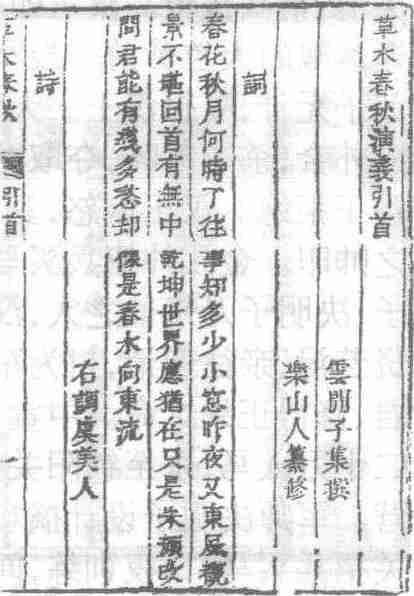 草木春秋演義引首
雲間子集撰
樂山人纂修
詞
春花秋月何時了往事知多少小窓昨夜又東風
景不堪回首有無中乾坤世界應猶在只是朱顏改
問君能有幾多愁却像是春水向東流
右調虞美人
詩
草木春秋 引首 一